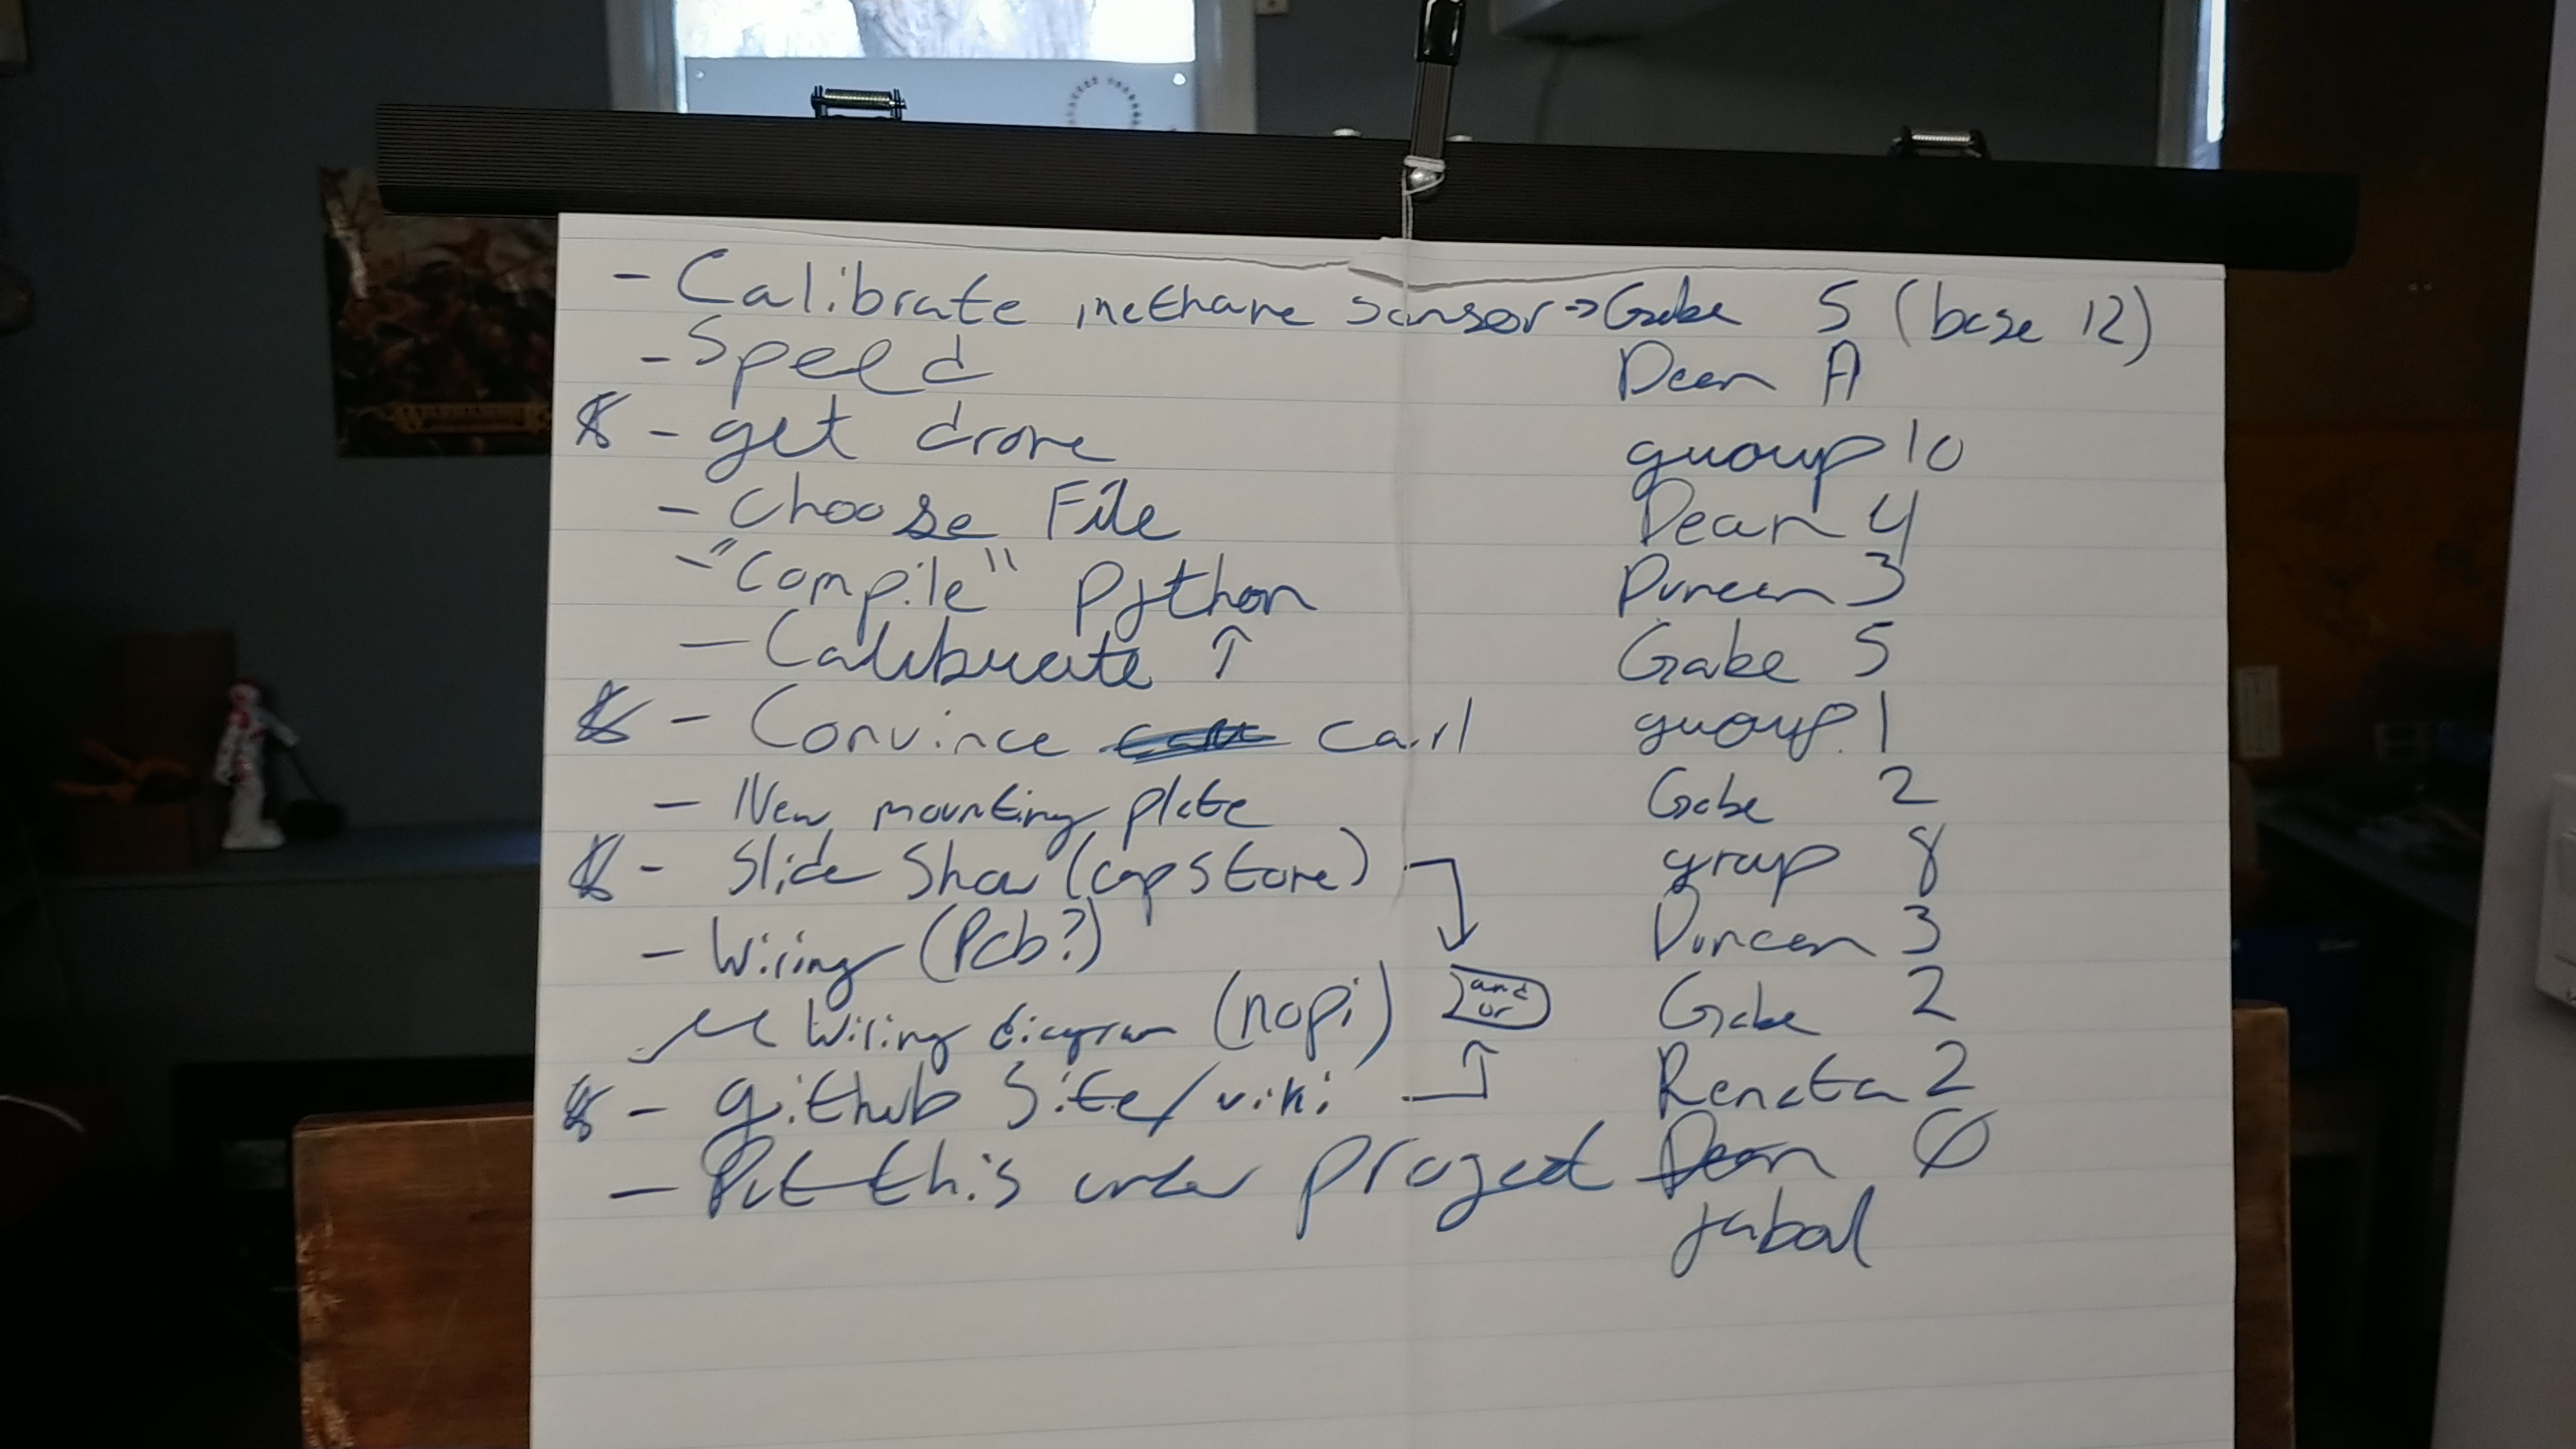 - Calibrate methane sensor → Gabe 5 (base 12)
- Speed Dean A
$ - get drone guoup 10
- Choose File Dean 4
- "Compile" Python Duncan 3
- Calibuate ↑ Gabe 5
$ - Convince carl guoup 1
- New mounting plate Gabe 2
$ - Slide Show (capstone) group 8
- Wiring (Pcb?) Duncan 3
Wiring diagram (nopi) and or Gabe 2
$ - github site/viki Renata 2
- Put this under project Dean Ø